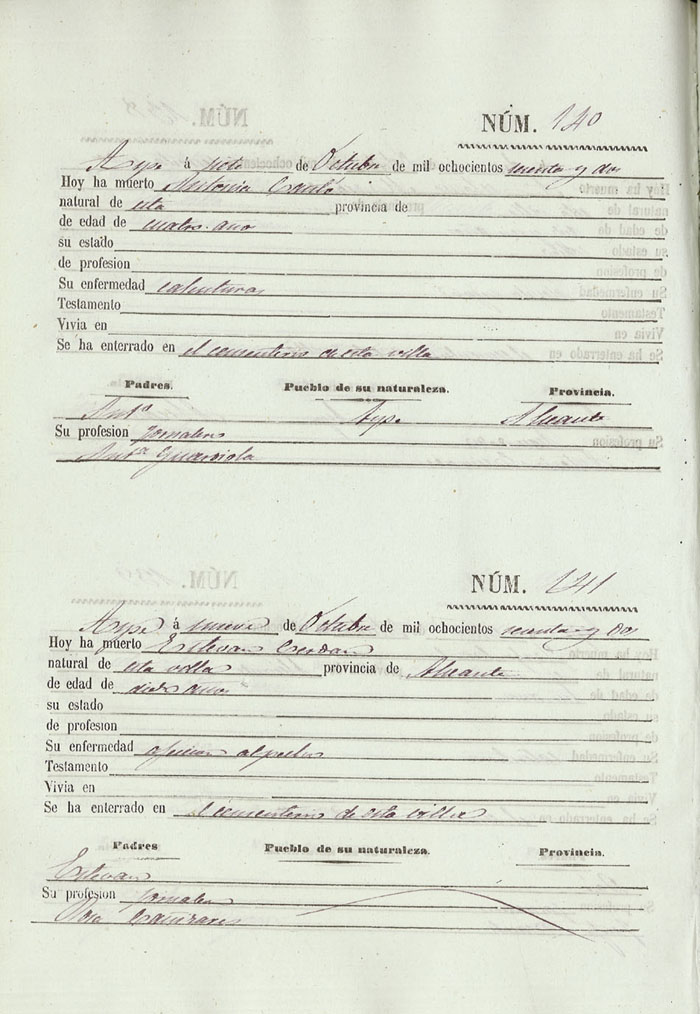 NÚM. 140
Aspe á siete de Octubre de mil ochocientos sesenta y dos
Hoy ha muerto Antonia
natural de esta provincia de
de edad de cuatro años
su estado
de profesion
Su enfermedad calenturas
Testamento
Vivia en
Se ha enterrado en el cementerio de esta villa
Padres. Pueblo de su naturaleza. Provincia.
Antº Aspe Alicante
Su profesion jornalero
Antª
NÚM. 141
Aspe á nueve de Octubre de mil ochocientos sesenta y dos
Hoy ha muerto Estevan Cerdan
natural de esta villa provincia de Alicante
de edad de años
su estado
de profesion
Su enfermedad al pecho
Testamento
Vivia en
Se ha enterrado en el cementerio de esta villa
Padres Pueblo de su naturaleza. Provincia.
Estevan
Su profesion jornalero
Rosa Cañizares